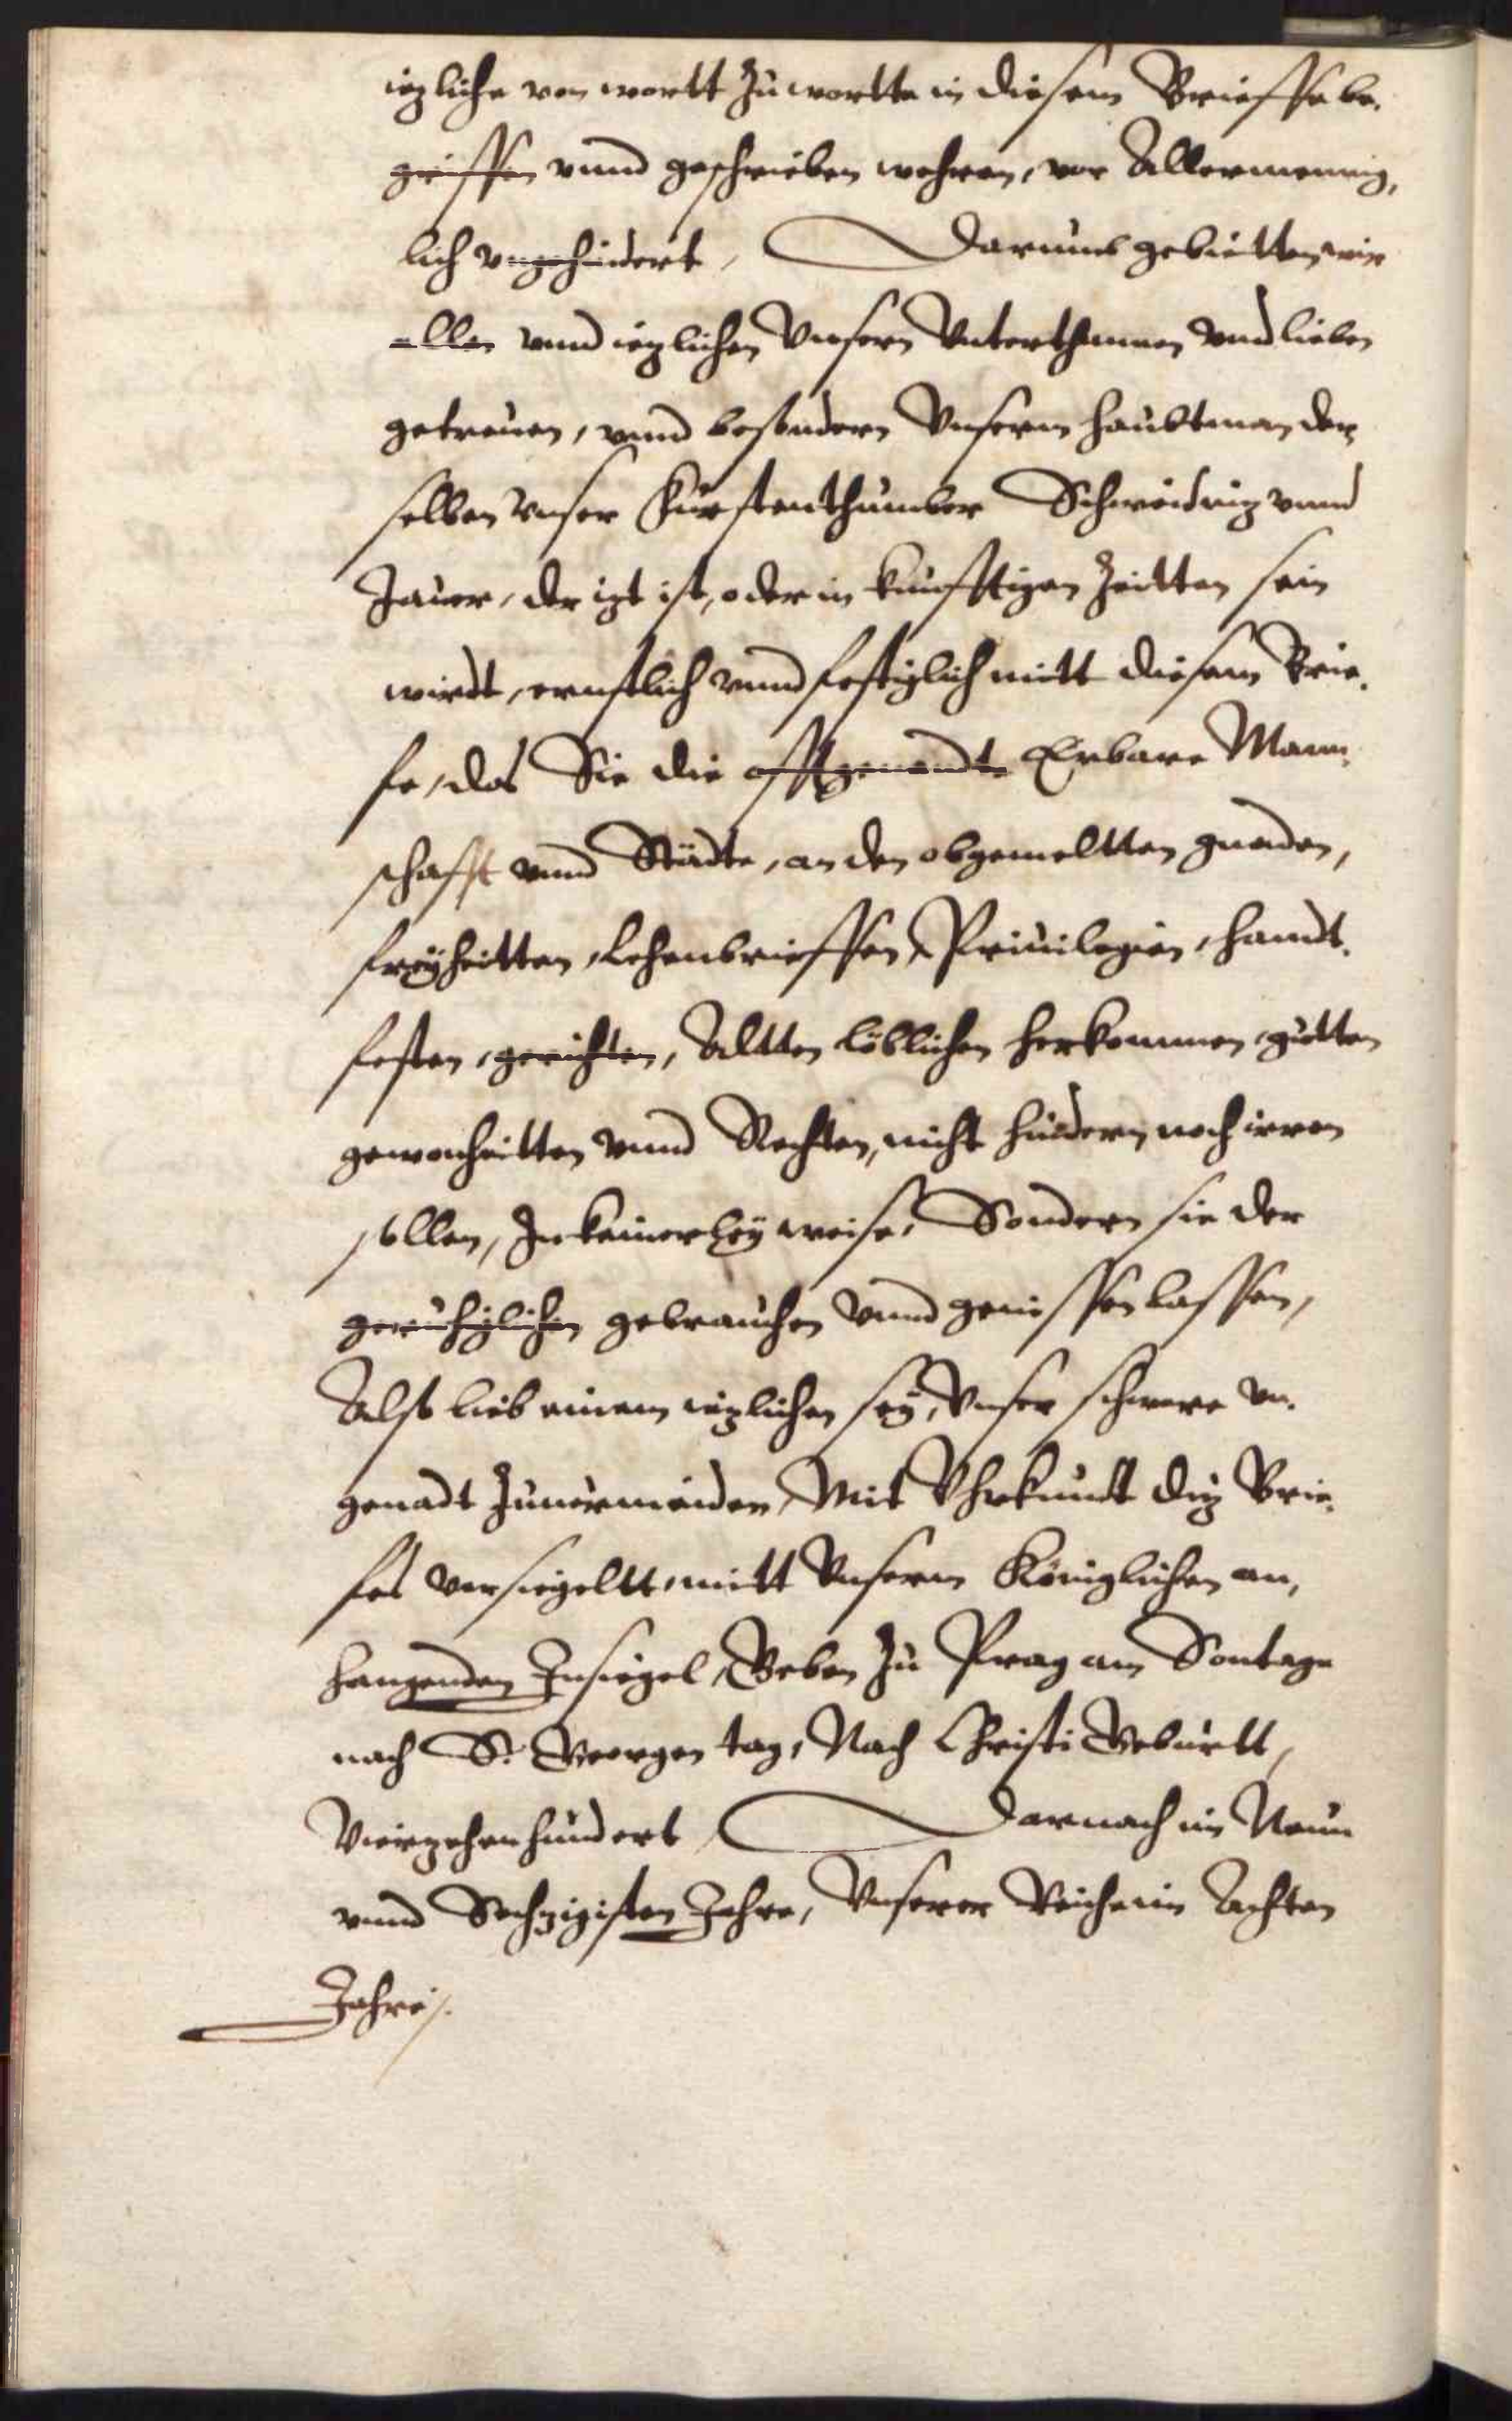 iegliche von wortt zu wortte in diesem Brieffe be-
grieffen vnnd geschrieben wehren, vor Allermennig,
lich vngehindert, Darumb gebietten wir
allen vnnd ieglichen Vnsern Vnterthannen vnd lieben
getreuen, vnnd besondern Vnserm haubtman der
selben vnser Fürstenthumber Schweidnig vnnd
Jauer, der izt ist, oder in kunfftigen Zeitten sein
wirdt, ernstlich vnnd festiglich mitt diesem Brie-
fe, das Sie die offtgenandte Erbare Mann-
schafft vnnd Städte, an den obgemeltten gnaden,
freyheitten, Lehenbrieffen, Priuilegien, handt-
festen, gerichten, Altten löblichen herkommen, gutten
gewonheitten vnnd Rechten, nicht hindern noch irren
sollen, In keinerley weise, Sondern sie der
geruhiglichen gebrauchen vnnd geniessen lassen,
Als lieb einem ieglichen sey, Vnser schwere vn-
genadt zuuermeiden, Mit Vhrkundt diz Brie-
fes versiegeltt mitt Vnserm Königlichen an,
hangenden Insiegel, Geben zu Prag am Sontage
nach S. Georgen tag, Nach Christi Geburtt,
Vierzehenhundert Darnach im Neun
vnnd Sechzigisten Jahre, Vnserer Reiche im Achten
Jahre/.